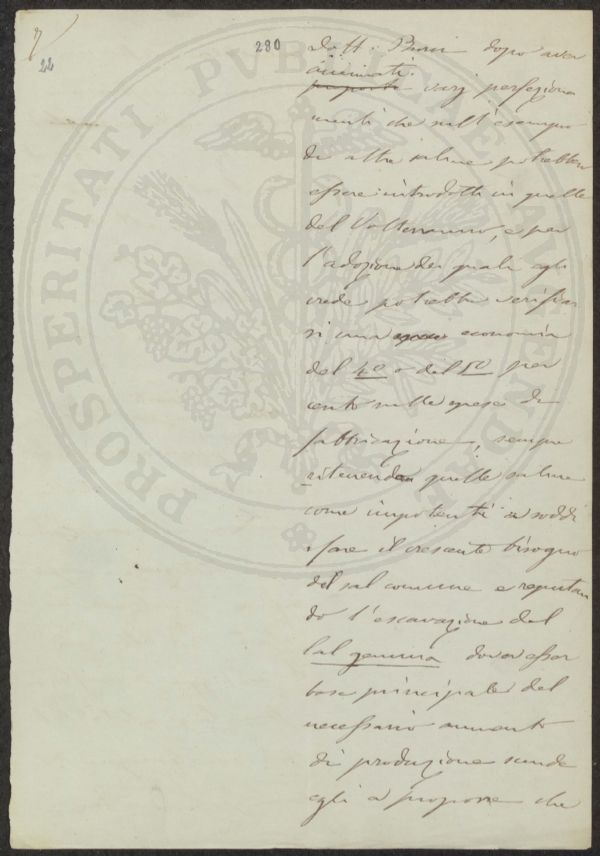 7
22
280
Dott: dopo aver
accennati
proposto varj perfeziona
menti che sull'esempio
di altre saline potrebbero
essere introdotti in quelle
del Volterrano, e per
l'adozione dei quali egli
crede potrebbe verificar
si una economia
del 4º o del 5º per
cento sulle spese di
fabbricazione, sempre
ritenendo quelle saline
come impotenti a soddi
sfare il crescente bisogno
del sal comune e reputan
do l'escavazione del
Sal gemma dover esser
base principale del
necessario aumento
di produzione scende
egli a proporre che
PROSPERITATI PUBLICAE AUGENDAE